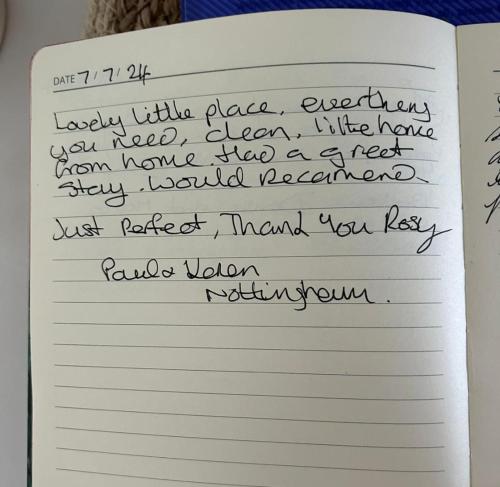 DATE 7/7/24
Lovely little place, evertheng
you need, clean, like home
from home Had a great
stay. Would Recamend
Just Perfect, Thank You Rosy
Paul & Keren
Nottingham.